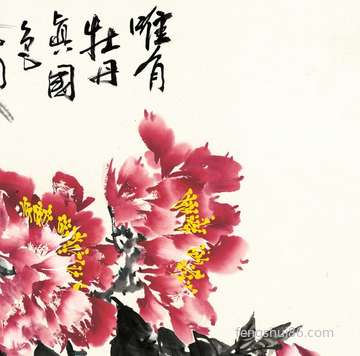 唯有
牡丹
真國
色
fengshui86.com